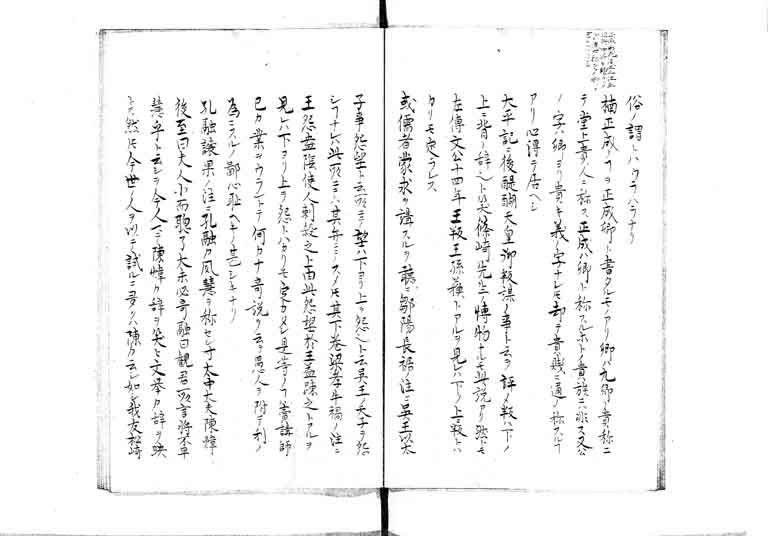 俗ノ謂トハウラハラナリ
楠正成ノコヲ正成卿ト書タルモノアリ卿ハ九卿ノ貴称ニ
テ堂上ノ貴人ニ称ス正成ハ卿ト称スルホドノ貴族ニハ非ス又公
ノ字ハ卿ヨリ貴キ義ノ字ナレ𪜈却テ貴賤ニ通ノ称スルコ
アリ心得テ居ヘシ
太平記ニ後醍醐天皇御叛謀ノ事ト云ヲ評メ叛ハ下ノ
上ニ背ノ辞也ト笑篠崎先生ノ博物ナルモ此説アリ然モ
左傳文公十四年王叛王孫蘇トアルヲ見レハ下ノ上叛トハ
カリモ定ラレス
或儒者蒙求ヲ講スルヲ聴ニ鄒陽長裾ノ注ニ呉王以太
子事怨望ト云所ニテ望ハ下ヨリ上ヲ怨也ト云呉王ノ天子ヲ怨
シコナレハ此所ニテハ其弁ニテスメ𪜈其下巻梁孝牛禍ノ注ニ
王怨盎陰使人刺殺之上由此怨望於王益疎之トアルヲ
見レハ下ヨリ上ヲ怨トハカリモ定カタシ是等ノコ売講師
已カ業ニウラントテ何カナ奇説ヲ云テ愚人ヲ附テ利ノ
為ニスルノ鄙心恥ヘキノ甚シキナリ
孔融譲果ノ注ニ孔融カ夙慧ヲ称セシ于太中大夫陳煒
後至曰人小而聰了大未必奇融曰観君所言将不早
慧乎ト云シヲ今人ミテ陳煒カ辞ヲ笑ヒ文挙カ辞ヲ快
トス然𪜈今世ノ人ヲ以テ試ルニ多ク陳カ云シ如シ我友松崎